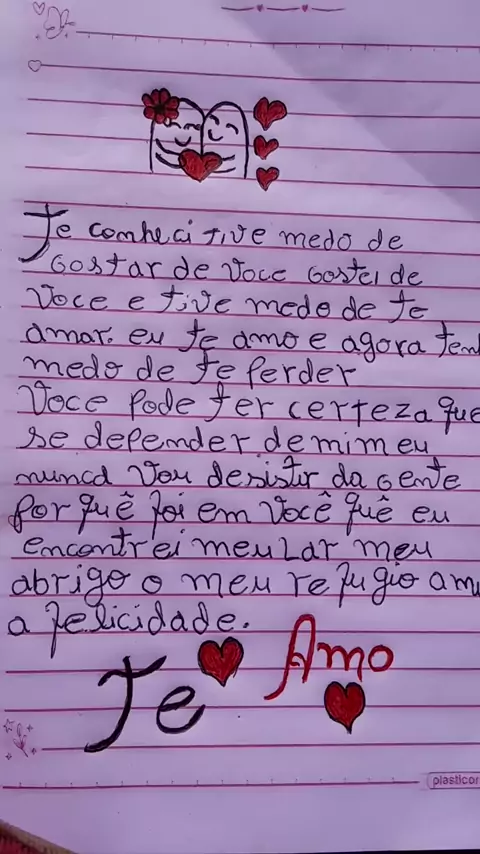 Te conheci tive medo de
Gostar de Voce Gostei de
Voce e tive medo de te
amar. eu te amo e agora
medo de te perder
Voce pode ter certeza que
se depender de mim eu
nunca Vou desistir da Gente
Por quê foi em Você quê eu
encontrei meu Lar meu
abrigo o meu refugio
a felicidade.
Te Amo